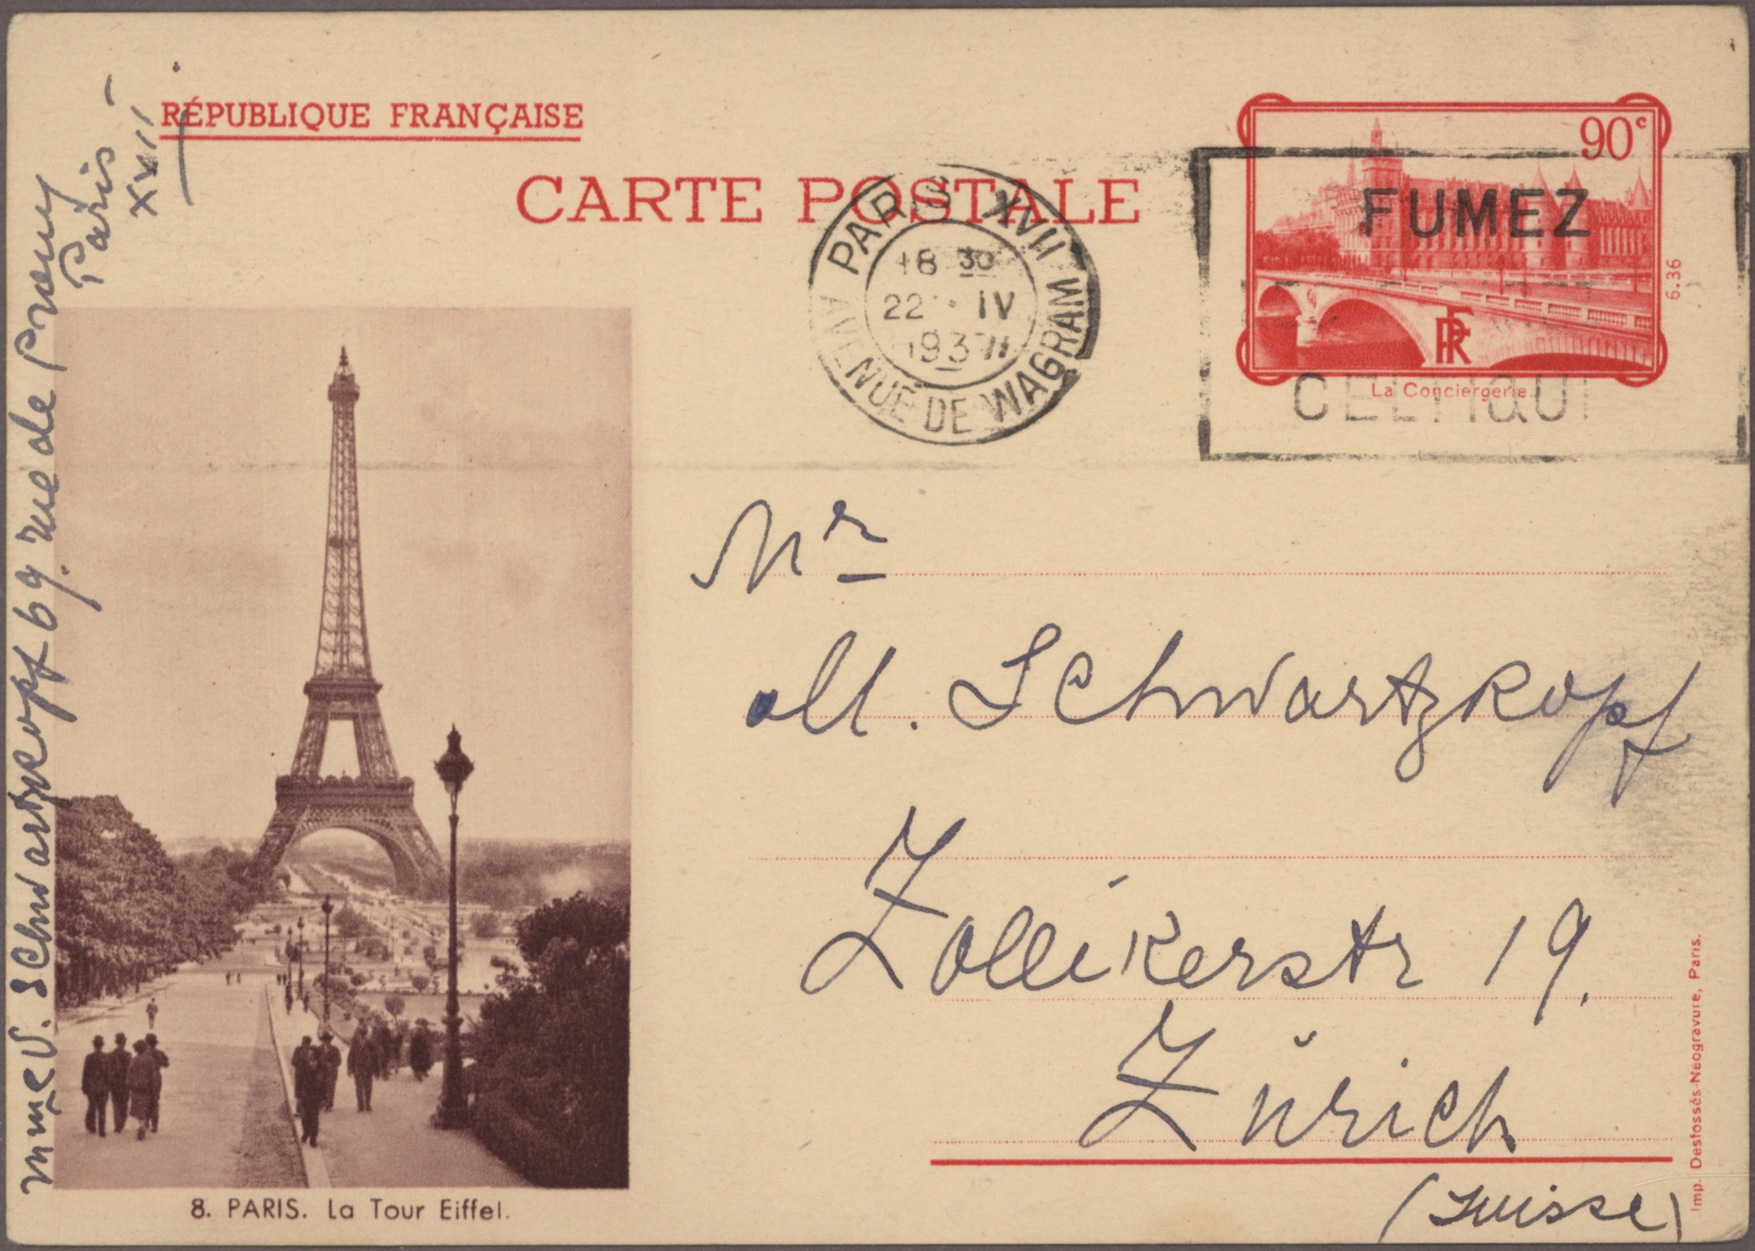 RÉPUBLIQUE FRANÇAISE
CARTE POSTALE
90c
PARIS XVII
18 30
22 · IV
1937
AVENUE DE WAGRAM
FUMEZ
CELTIQU
La Conciergerie
RF
6.36
Mme V. Schwartzkopf 69. rue de Prony
Paris
XVII
Mr
M. Schwartzkopf
Zollikerstr 19.
Zürich
(Suisse)
8. PARIS. La Tour Eiffel.
Imp. Desfossés-Néogravure, Paris.